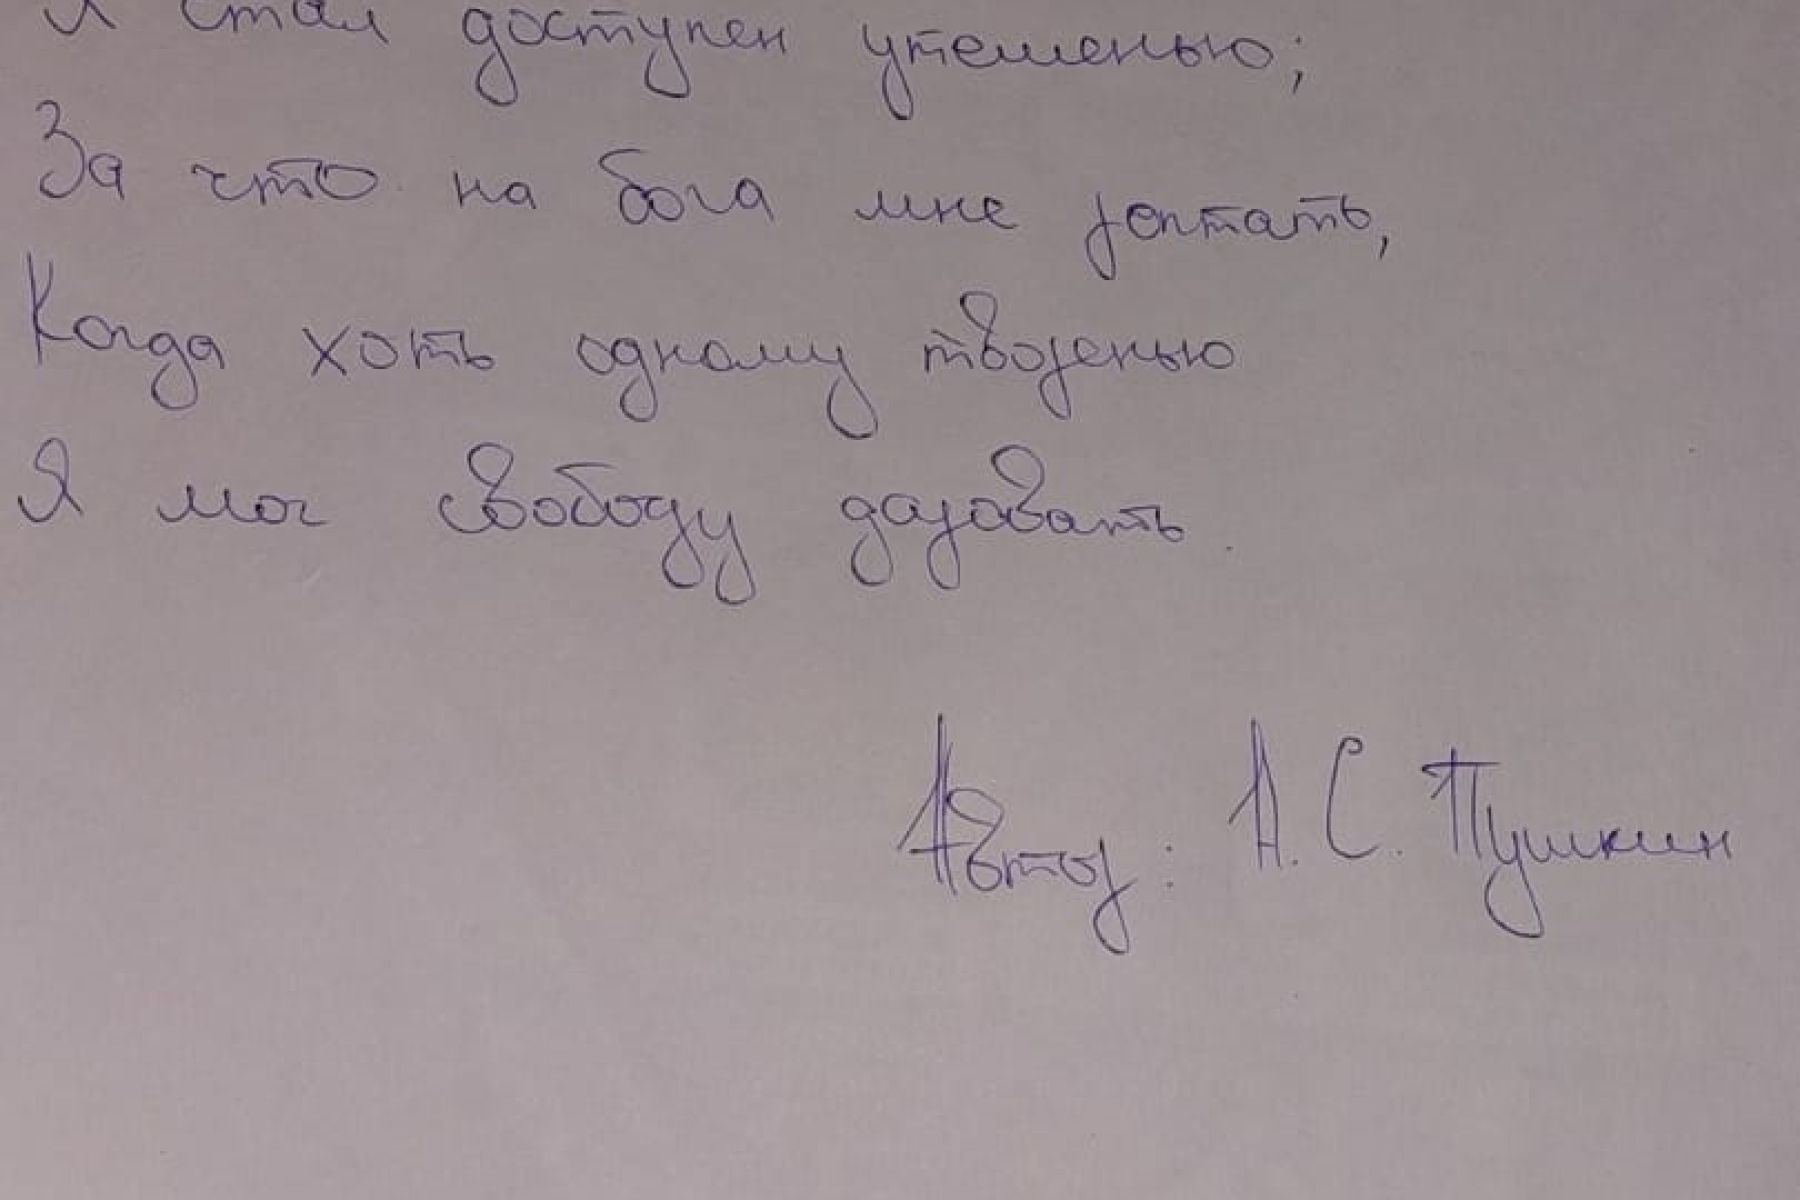 Я стал доступен утешенью;
За что на бога мне роптать,
Когда хоть одному творенью
Я мог свободу даровать.
Автор: А. С. Пушкин